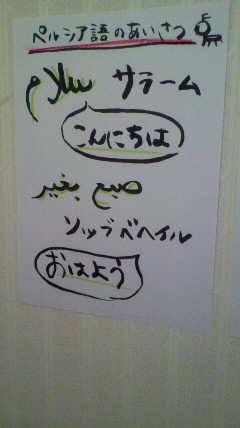 ペルシア語のあいさつ
سلام サラーム
こんにちは
صبح بخیر
ソッブベヘイル
おはよう